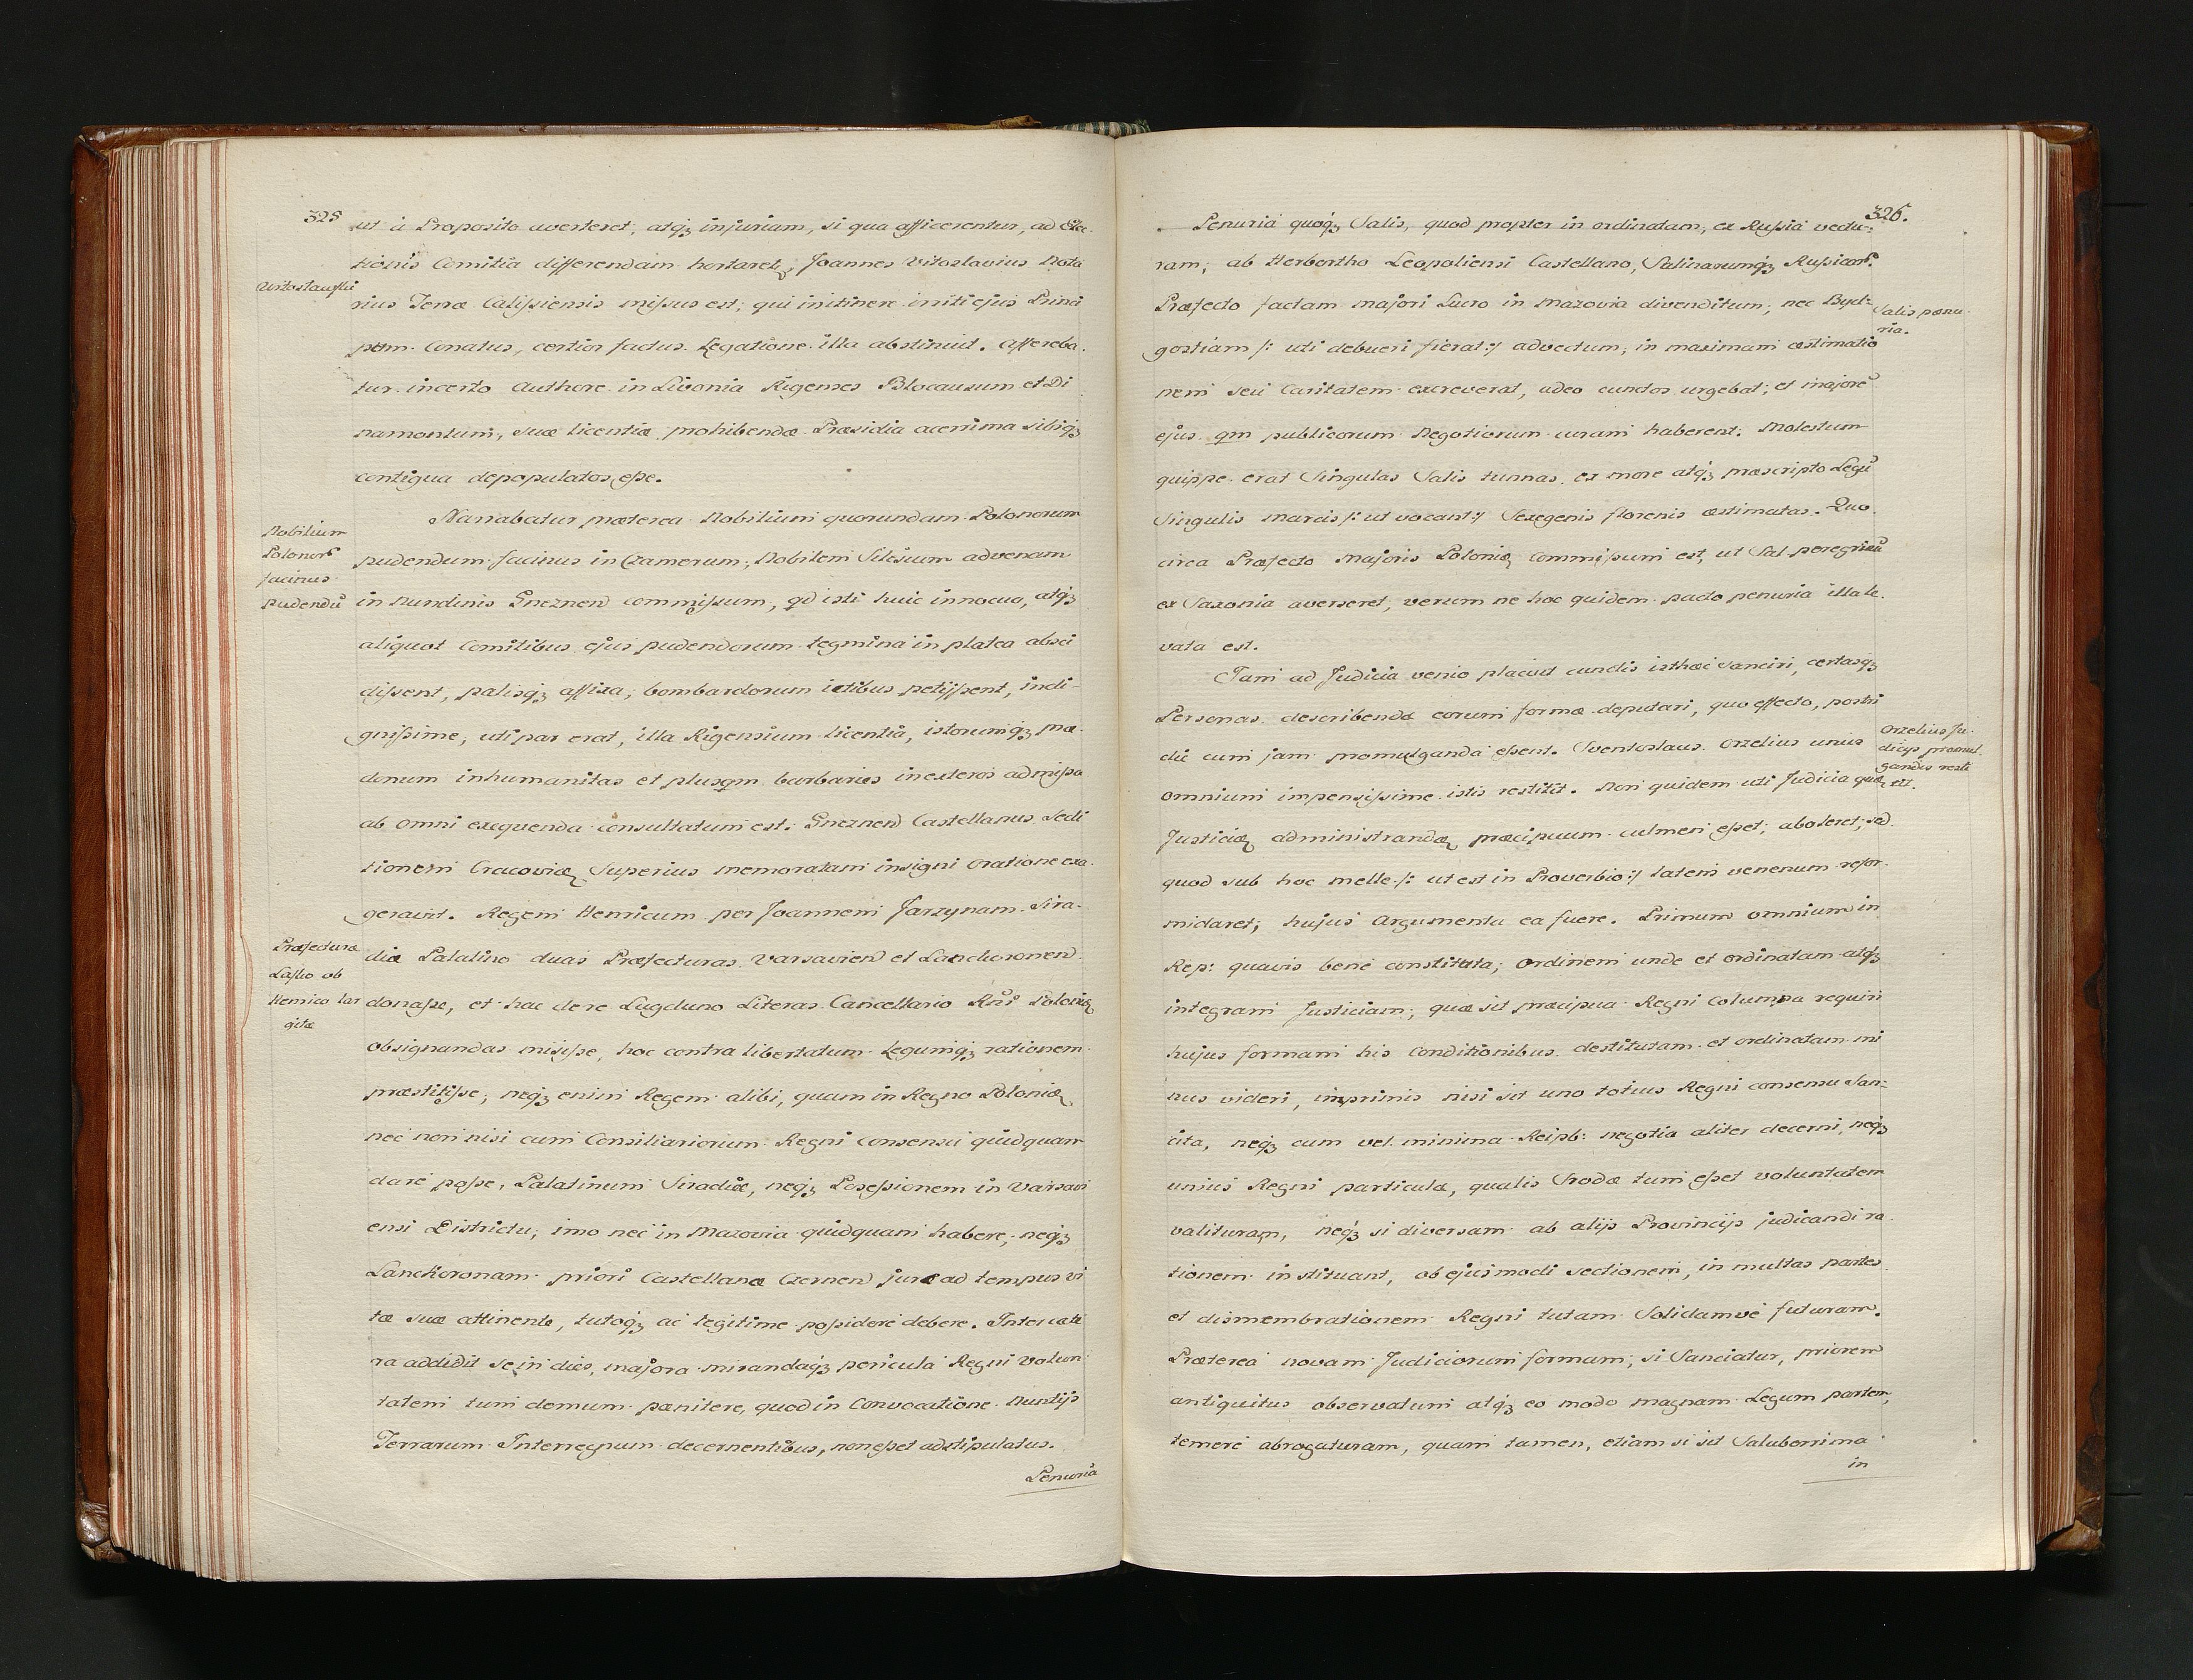 325
ut à Proposito averteret, atq́ȝ injuriam, si qua afficerentur, ad Elec-
tionis Comitia differendam hortaret, Joannes Vitoslavius Nota
Witoslauski
rius Terræ Calissiensis missus est; qui initinere irriti ejus Princi
pum Conatus, certior factus Legatione illa abstinuit. Affereba
tur incerto Authore in Livonia Rigenses Blocausum et Di
namontum, suæ licentiæ prohibendæ Præsidia acerrima sibiq́ȝ
contigua depopulatos esse.
Narrabatur præterea Nobilium quorundam Polonorum
Nobilium
Polonor
facinus
pudendū
pudendum facinus in Czamerum, Nobilem Silesium advenam
in Nundinis Gneznen commissum, qd isti huic innocuo, atq́ȝ
aliquot Comitibus ejus pudendorum tegmina in platea absci
dissent, palisq́ȝ affixa, bombardorum ictibus petijssent, indi-
gnissime, uti par erat, illa Rigensium licentia, istorumq́ȝ præ-
donum inhumanitas et plusqm barbaries in exteros admissa
ab omni exequenda consultatum est. Gneznen Castellanus Sedi
tionem Cracoviæ Superius memoratam insigni oratione exa-
geravit. Regem Henricum per Joannem Jarzynam Sira-
Præfecturæ
Lasko ob
Henrico lar
gitæ
diæ Palatino duas Præfecturas Varsavien et Lanckoronen
donasse, et hac de re Lugduno Literas Cancellario Rni Poloniæ
obsignandas misisse, hoc contra libertatum Legumq́ȝ rationem
præstitisse, neq́ȝ enim Regem alibi, quam in Regno Poloniæ
nec non nisi cum Consiliariorum Regni consensu quidquam
dare posse, Palatinum Siradiæ, neq́ȝ Possessionem in Varsavi
ensi Districtu, imo nec in Mazovia quidquam habere, neq́ȝ
Lanckoronam priori Castellanæ Czernen jure ad tempus vi
tæ suæ attinente, tutoq́ȝ ac legitime possidere debere. Inter cæte
ra addidit se in dies, majora mirandaq́ȝ pericula Regni volun
tatem tum demum pænitere, quod in Convocatione Nuntijs
Terrarum Interregnum decernentibus, non esset adstipulatus.
Penuria
326.
Penuria quoq́ȝ Salis, quod propter in ordinatam, ex Russia vectu-
ram, ab Herbertho Leopoliensi Castellano, Salinarumq́ȝ Russicar
Præfecto factam majori Lucro in Mazovia divenditum, nec Byd-
Salis penu
ria.
gostiam /: uti debueri fierat :/ advectum, in maximam æstimatio
nem seu Caritatem excreverat, adeo cunctos urgebat, et majorē
ejus qm publicorum Negotiorum curam haberent. Molestum
quippe erat Singulas Salis tunnas ex more atq́ȝ præscripto Legū
Singulis marcis /: ut vocant :/ Sexegenis florenis æstimatas. Quo
circa Præfecto Majoris Poloniæ commissum est, ut Sal peregrinū
ex Saxonia averseret, verum ne hoc quidem pacto penuria illa le-
vata est.
Tam ad Judicia venio placuit cunctis isthæc sanciri, certasq́ȝ
Personas describendæ eorum formæ deputari, quo effecto, postri
Orzelius Ju-
dicijs promul
gandis resti
tit.
die cum jam promulganda essent. Sventoslaus Orzelius unius
omnium impensissime istis restitit. Non quidem uti Judicia quæ
Justiciæ administrandæ præcipuum culmen esset, aboleret, sed
quod sub hoc melle /: ut est in Proverbio :/ latens venenum refor-
midaret, hujus Argumenta ea fuere. Primum omnium in
Rep: quavis bene constituta, Ordinem unde et ordinatam atq́ȝ
integram Justiciam, quæ sit præcipua Regni Columna requiri
hujus formam his conditionibus destitutam et ordinatam mi
nus videri, inprimis nisi sit uno totius Regni consensu San-
cita, neq́ȝ cum vel minima Reipb: negotia aliter decerni, neq́ȝ
unius Regni particulæ, qualis Srodæ tum esset voluntatem
valituram, neq́ȝ si diversam ab alijs Provincijs judicandi ra-
tionem instituant, ob ejusmodi sectionem, in multas partes
et dismembrationem Regni tutam Solidamve futuram.
Præterea novam Judiciorum formam, si Sanciatur, priorem
antiquitus observatum atq́ȝ eo modo magnam Legum partem
temere abrogaturam, quam tamen, etiam si sit Saluberrima
in